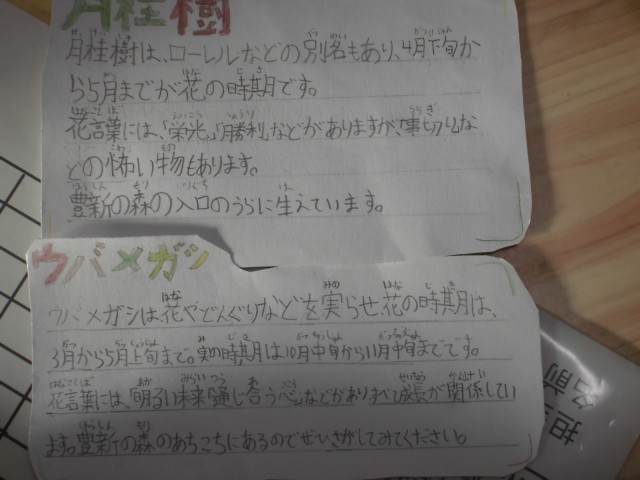 月桂樹
月桂樹は、ローレルなどの別名もあり、4月下旬か
ら5月までが花の時期です。
花言葉には、「栄光」、「勝利」などがありますが、「裏切り」な
どの怖い物もあります。
豊新の森の入口のうらに生えています。
ウバメガシ
ウバメガシは、花やどんぐりなどを実らせ、花の時期は、
3月から5月上旬まで。実の時期は10月中旬から11月中旬までです。
花言葉には、「明るい未来」「通じ合う心」などがあり、すべて成長が関係してい
ます。豊新の森のあちこちにあるのでぜひさがしてみてください。
担
名前